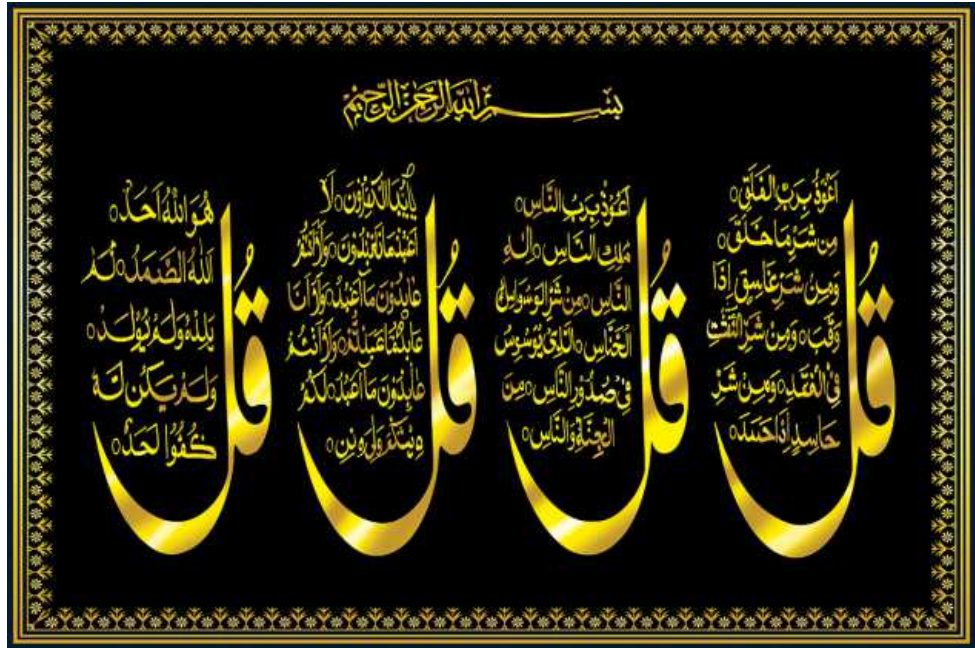 بِسْمِ اللهِ الرَّحْمٰنِ الرَّحِيْمِ
قُلْ
اَعُوْذُ بِرَبِّ الْفَلَقِ ○
مِنْ شَرِّ مَا خَلَقَ ○
وَمِنْ شَرِّ غَاسِقٍ اِذَا
وَقَبَ ○ وَمِنْ شَرِّ النَّفّٰثٰتِ
فِي الْعُقَدِ ○ وَمِنْ شَرِّ
حَاسِدٍ اِذَا حَسَدَ ○
قُلْ
اَعُوْذُ بِرَبِّ النَّاسِ ○
مَلِكِ النَّاسِ ○ اِلٰهِ
النَّاسِ ○ مِنْ شَرِّ الْوَسْوَاسِ
الْخَنَّاسِ ○ الَّذِيْ يُوَسْوِسُ
فِيْ صُدُوْرِ النَّاسِ ○ مِنَ
الْجِنَّةِ وَالنَّاسِ ○
قُلْ
يٰاَيُّهَا الْكٰفِرُوْنَ ○ لَا
اَعْبُدُ مَا تَعْبُدُوْنَ ○ وَلَا اَنْتُمْ
عَابِدُوْنَ مَا اَعْبُدُ ○ وَلَا اَنَا
عَابِدٌ مَّا عَبَدْتُّمْ ○ وَلَا اَنْتُمْ
عَابِدُوْنَ مَا اَعْبُدُ ○ لَكُمْ
دِيْنُكُمْ وَلِيَ دِيْنِ ○
قُلْ
هُوَ اللهُ اَحَدٌ ○
اَللهُ الصَّمَدُ ○ لَمْ
يَلِدْ ○ وَلَمْ يُوْلَدْ ○
وَلَمْ يَكُنْ لَّهٗ
كُفُوًا اَحَدٌ ○